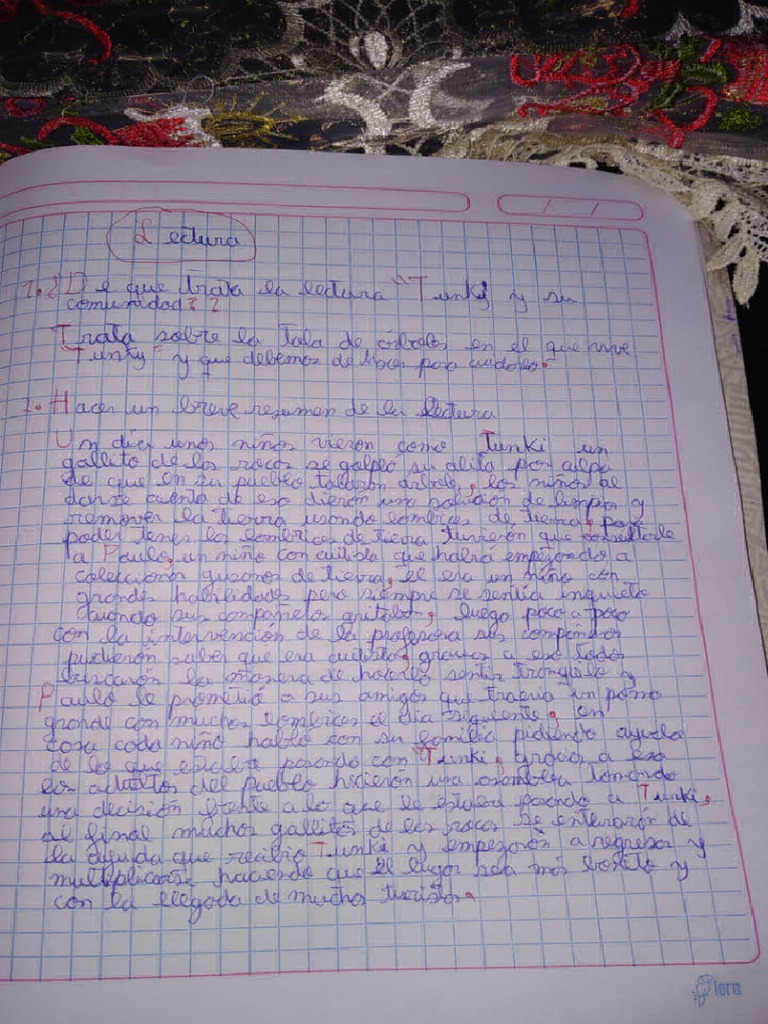 Lectura
1. ¿De que trata la lectura "Tunki y su
comunidad"?
Trata sobre la tala de árboles en el que vive
"Tunky" y que debemos de hacer para cuidarlos.
2. Hacer un breve resumen de la lectura
Un dia unos niños vieron como Tunki un
gallito de las rocas se golpeo su alita por culpa
de que en su pueblo talaron árboles, los niños al
darse cuenta de eso dieron una solucion de limpiar y
remover la tierra usando lombrices de tierra, para
poder tener las lombrices de tierra tuvieron que
a Paulo, un niño con autista que habia empezando a
coleccionar gusanos de tierra, el era un niño con
grandes habilidades pero siempre se sentia inquieto
cuando sus compañeros gritaban, luego poco a poco
con la intervención de la profesora sus compañeros
pudieron saber que era autista, gracias a eso todos
buscaron la manera de hacerlo sentir tranquilo y
Paulo le prometió a sus amigos que traeria un pomo
grande con muchas lombrices el dia siguiente, en
casa cada niño hablo con su familia pidiendo ayuda
de lo que estaba pasando con Tunki, gracias a eso
los adultos del pueblo hicieron una asamblea tomando
una decisión frente a lo que le estaba pasando a Tunki,
al final muchos gallitos de las rocas se enteraron de
la ayuda que recibio Tunki y empezaron a regresar y
multiplicarse haciendo que el lugar sea más bonito y
con la llegada de muchos turistas.
loro